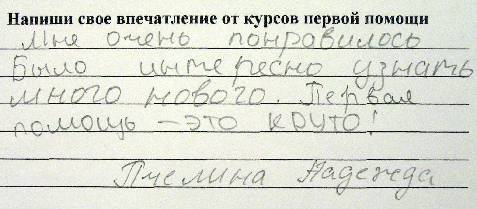 Напиши свое впечатление от курсов первой помощи
Мне очень понравилось
Было интересно узнать
много нового. Первая
помощь – это круто!
Пчелина Надежда